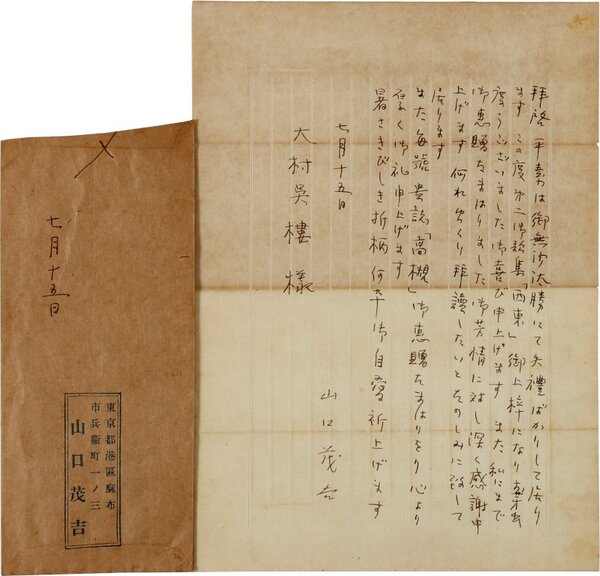 拝啓 平素は御無沙汰勝にて失禮ばかりして居り
ます この度第二御歌集「西東」御上梓になり
度うございました 御喜び申上げます また私にまで
御恵贈たまはりました御芳情に対し深く感謝申
上げます 何れゆつくり拝讀したいとたのしみに致して
居ります
また毎號貴誌「高槻」御恵贈たまはりをり心より
厚く御礼申上げます
暑さきびしき折柄 何卒御自愛祈上げます
七月十五日
山口茂吉
大村呉樓様
七月十五日
東京都港區麻布
市兵衞町一ノ三
山口茂吉